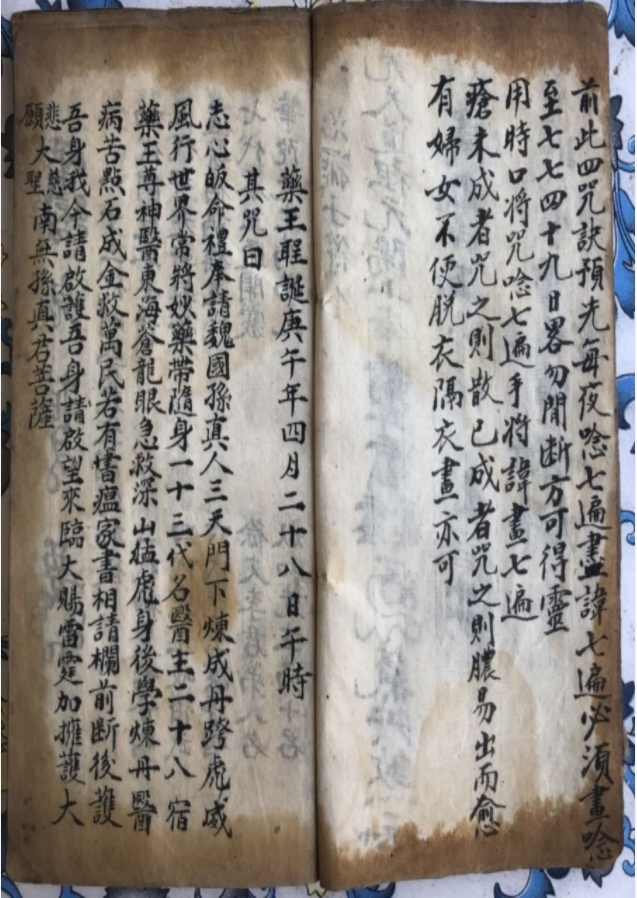 前此四咒訣預先每夜唸七遍畫諱七遍必須畫唸
至七七四十九日畧勿間断方可得靈
用時口將咒唸七遍手將諱畫七遍
瘡未成者咒之則散已成者咒之則膿易出而愈
有婦女不便脱衣隔衣畫亦可
藥王聖誕庚午年四月二十八日午時
其咒曰
志心皈命禮奉請魏國孫真人三天門下煉成丹跨虎威
風行世界常將妙藥帶隨身一十三代名醫主二十八宿
藥王尊神醫東海蒼龍眼急救深山猛虎身後學煉丹醫
病苦點石成金救萬民若有書瘟家書相請欄前断後護
吾身我今請啟護吾身請啟望來臨大賜雷霆加擁護大
悲大慈
願大聖南無孫真君菩薩